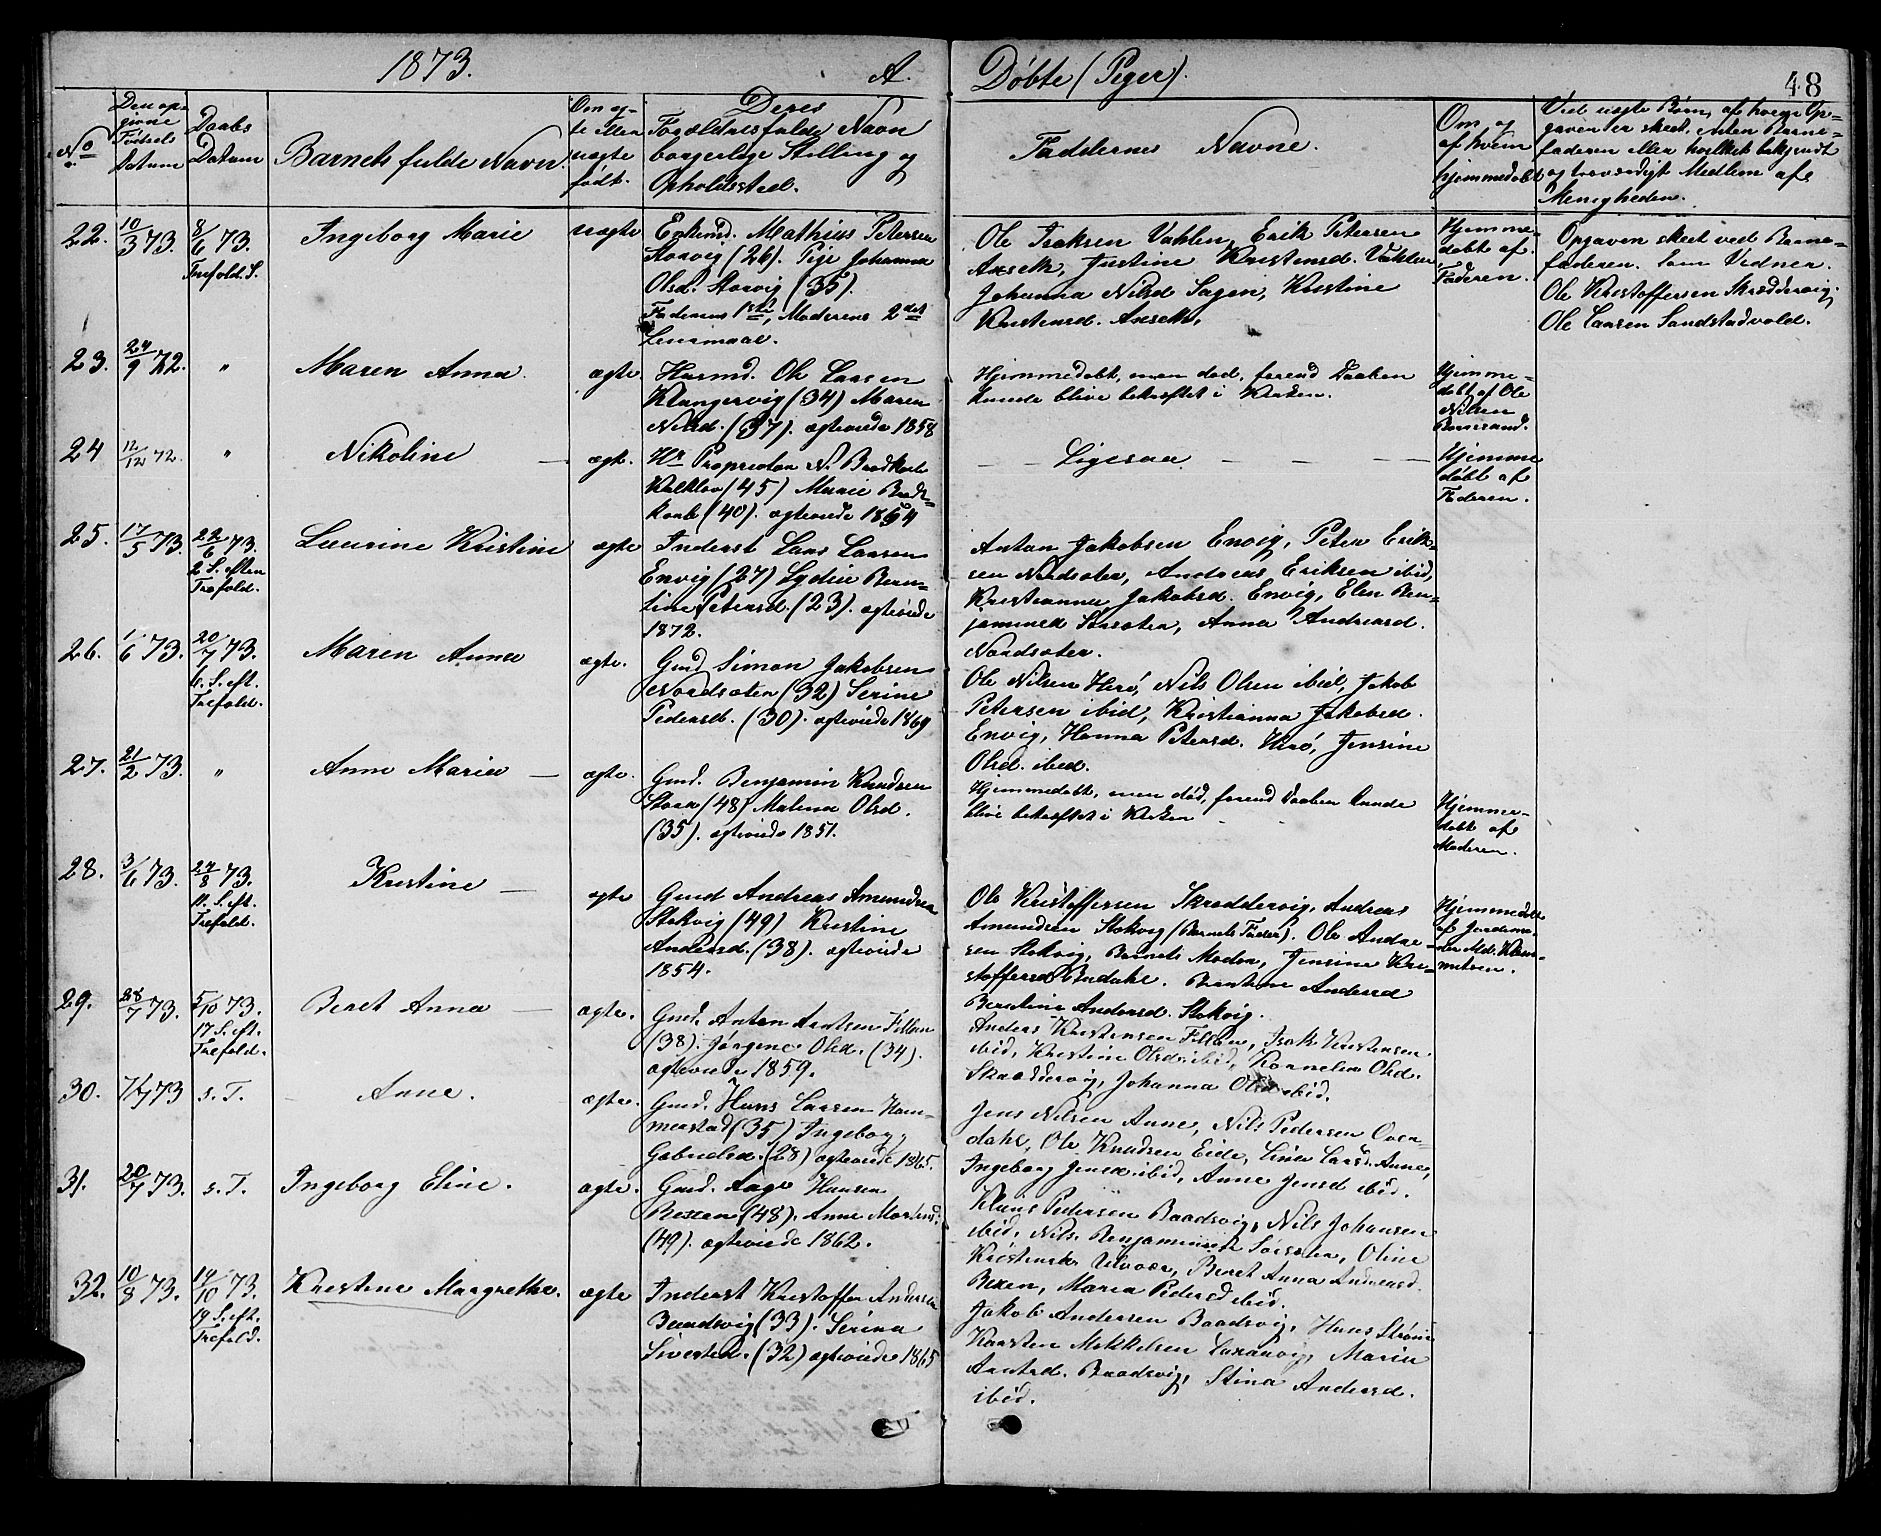 1873. A. Døbte (Piger). 48
No
Den opgivne Fødsels Datum
Daabs Datum
Barnets fulde Navn
Om ægte eller uægte født.
Deres Forældres fulde Navn borgerlige Stilling og Opholdssted.
Faddernes Navne.
Om og af hvem hjemmedøbt
Ved uægte Børn, af hvem Opgaven er skeet, enten Barnefaderen eller hvilket bekjendt og troværdigt Medlem af Menigheden.
22. 10/3 73. 8/6 73. Trefold. S. Ingeborg Marie uægte
Mathius Petersen
Storvig (26). Pige Johanna
Olsd. Storvig (35).
Faderens 1ste, Moderens 2det
Leiermaal.
Ole Isaksen Vahlen, Erik Petersen
Ansek, Justine Kristensd. Vahlen
Johanna Nilsd Sagen, Kristine
Kristensd. Ansek.
Hjemme-
døbt af
Faderen.
Opgaven skeet ved Barne-
faderen. Som Vidner.
Ole Kristoffersen Skræddervig.
Ole Larsen Sandstadvold.
23. 24/9 72. " Maren Anna. ægte.
Husmd. Ole Larsen
Klungervig (34) Maren
Nilsd. (37). ægteviede 1858
Hjemmedøbt, men død, førend Daaben
kunde blive bekræftet i Kirken.
Hjemme-
døbt af Ole
Nilsen
24 12/12 72. " Nikoline ægt.
Hr Proprietær N. Baadkarl
(45) Marie
(40). ægteviede 1864
Ligesaa
Hjemme
døbt af
Faderen.
25. 17/5 73. 22/6 73. 2 S. eften Trefold. Laurine Kristine ægte
Inderst Lars Larsen
Envig (27) Lydia Beren-
tine Petersd. (23). ægteviede
1872.
Anton Jakobsen Envig, Peter Erik-
sen Nordsæter, Andreas Eriksen ibid,
Kristianna Jakobsd. Envig, Elen Ben-
jaminsd Sørsæter, Anna Andreasd.
Nordsæter.
26. 1/6 73. 20/7 73. 6. S. eft. Trefold. Maren Anna ægte.
Gmd Simon Jakobsen
Nordsæter (32) Serine
Pedersd. (30). ægteviede 1869
Ole Nilsen Herø, Nils Olsen ibid, Jakob
Petersen ibid, Kristianna Jakobsd.
Envig, Hanna Petersd. Herø, Jensine
Olsd. ibid.
27. 21/2 73. " Anne Maria ægte.
Gmd. Benjamin Knudsen
(48) Malena Olsd.
(35). ægteviede 1851.
Hjemmedøbt, men død, førend Daaben kunde
blive bekræftet i Kirken
Hjemme-
døbt af
Moderen.
28. 3/6 73. 24/8 73. 11. S. eft. Trefold. Kristine ægte
Gmd Andreas Amundsen
Stokvig (49) Kristine
Andersd. (38). ægteviede
1854.
Ole Kristoffersen Skræddervig, Andreas
Amundsen Stokvig (Barnets Fader). Ole Andre-
sen Stokvig, Barnets Moder, Jensine Kri-
stoffersd Budahl. Berntine Andersd
Berntine Andersd. Stokvig.
Hjemmedøbt
af Jordemo-
der
29. 28/7 73. 5/10 73. 17 S. eft. Trefold. Beret Anna ægte.
Gmd. Anton Arntsen Fillan
(38). Jørgine Olsd. (34).
ægteviede 1859.
Anders Kristensen Fillan, Isak Kristensen
ibid, Kristine Olsd. ibid, Kornelia Olsd.
Skræddervig, Johanna Olsd ibid.
30. 7/7 73 s. T. Anne. ægte.
Gmd. Hans Larsen Ham-
merstad (35) Ingeborg
Gabrielsd. (28) ægteviede 1865.
Jens Nilsen Aune, Nils Pedersen Over-
dahl, Ole Knudsen Eide, Lina Larsd. Aune,
Ingeborg Jensd. ibid, Anne Jensd ibid.
31. 20/7 73. s. T. Ingeborg Eline. ægte.
Gmd. Aage Hansen
Bexen (48). Anne Mortensd.
(49). ægteviede 1862.
Klaus Pedersen Baadsvig, Nils Johansen
ibid, Nils Benjaminsen Sørsæter, Oline
Kristensd. Ulvøen, Beret Anna Andreasd.
Bexen, Maria Pedersd ibid.
32. 10/8 73. 19/10 73. 19 S. eft. Trefold. Kristine Margrethe. ægte
Inderst Kristoffer Andersen
Baadsvig (33). Serina
Sivertsd. (32) ægteviede 1865
Jakob Andersen Baadsvig, Hans Strøm,
Karsten Mikkelsen Laxavig, Maria
Arntsd. Baadsvig, Stina Andersd.
ibid.